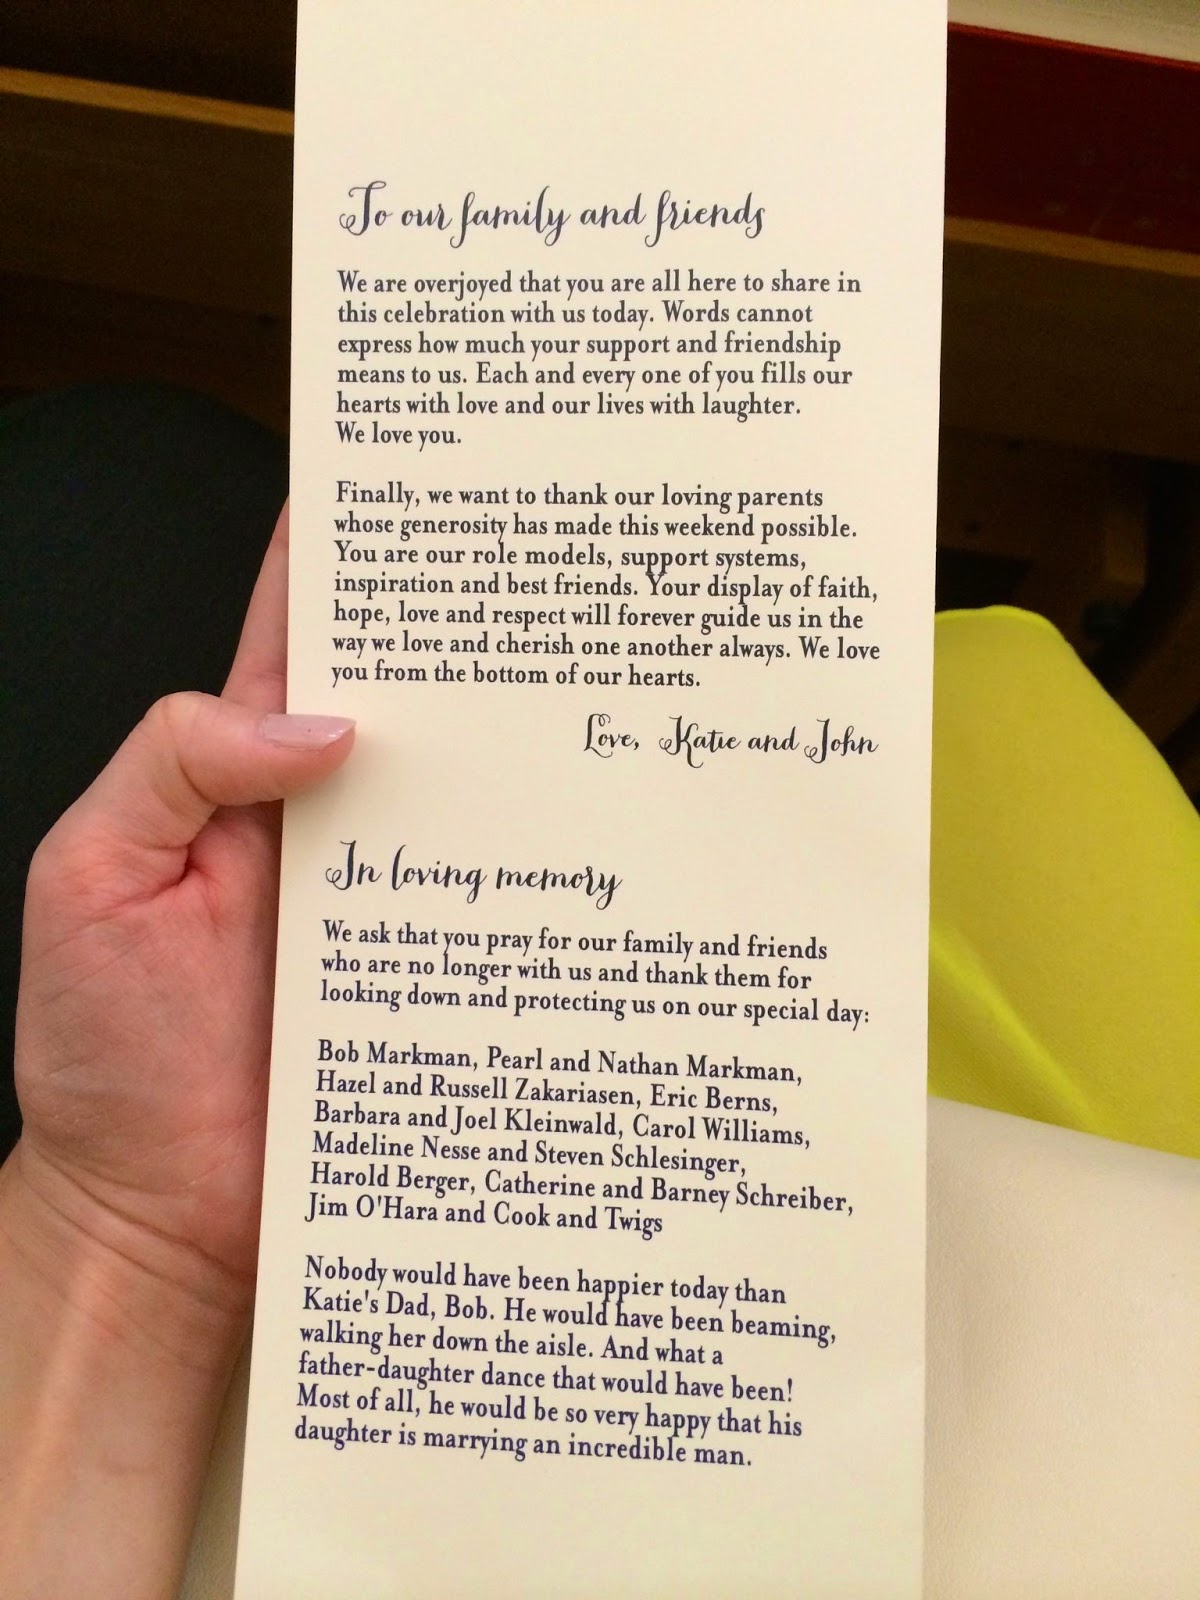 To our family and friends
We are overjoyed that you are all here to share in
this celebration with us today. Words cannot
express how much your support and friendship
means to us. Each and every one of you fills our
hearts with love and our lives with laughter.
We love you.
Finally, we want to thank our loving parents
whose generosity has made this weekend possible.
You are our role models, support systems,
inspiration and best friends. Your display of faith,
hope, love and respect will forever guide us in the
way we love and cherish one another always. We love
you from the bottom of our hearts.
Love, Katie and John
In loving memory
We ask that you pray for our family and friends
who are no longer with us and thank them for
looking down and protecting us on our special day:
Bob Markman, Pearl and Nathan Markman,
Hazel and Russell Zakariasen, Eric Berns,
Barbara and Joel Kleinwald, Carol Williams,
Madeline Nesse and Steven Schlesinger,
Harold Berger, Catherine and Barney Schreiber,
Jim O'Hara and Cook and Twigs
Nobody would have been happier today than
Katie's Dad, Bob. He would have been beaming,
walking her down the aisle. And what a
father-daughter dance that would have been!
Most of all, he would be so very happy that his
daughter is marrying an incredible man.